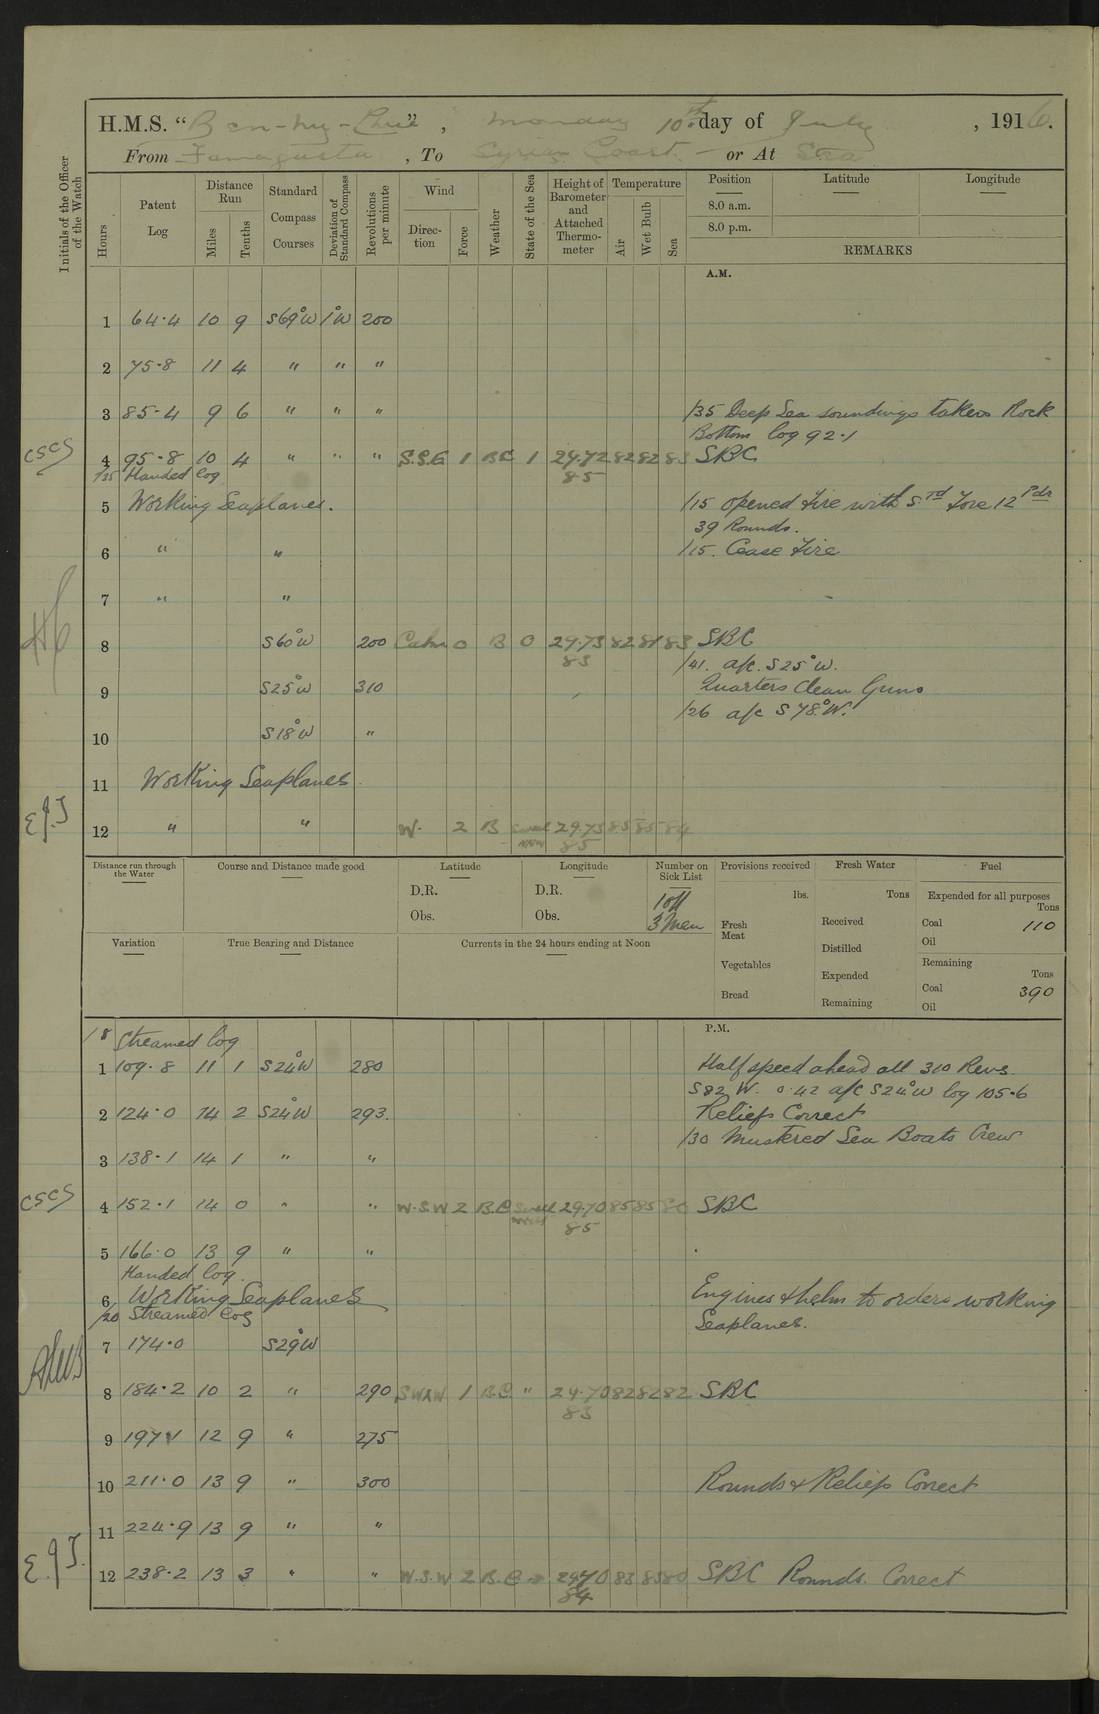 H.M.S. “Ben-my-Chree”, Monday 10th day of July, 1916.
From Famagusta, To Syrian Coast or At Sea
Initials of the Officer of the Watch
Hours
Patent Log
Distance Run
Miles
Tenths
Standard Compass Courses
Deviation of Standard Compass
Revolutions per minute
Wind
Direction
Force
Weather
State of the Sea
Height of Barometer and Attached Thermometer
Temperature
Air
Wet Bulb
Sea
Position
8.0 a.m.
8.0 p.m.
Latitude
Longitude
REMARKS
A.M.
1 64.4 10 9 S69°W 1°W 200
2 75.8 11 4 " " "
3 85.4 9 6 " " " /35 Deep Sea soundings taken Rock
Bottom log 92.1
CSCS 4 95.8 10 4 " " " S.S.E 1 BC 1 29.72 82 82 83 SBC
/35 Handed log 85
5 Working Seaplanes. /15 opened fire with S. Td Fore 12 Pdr
39 Rounds.
6 " " /15. Cease Fire
7 " "
8 S60°W 200 Calm 0 B 0 29.73 82 81 83 SBC
83 /41. a/c. S25°W.
9 S25°W 310 Quarters Clean Guns
/26 a/c S78°W.
10 S18°W "
11 Working Seaplanes
E.J.T 12 " " W. 2 B Swell 29.73 85 85 84
85
Distance run through the Water
Course and Distance made good
Latitude
D.R.
Obs.
Longitude
D.R.
Obs.
Number on Sick List
1 off
3 Men
Provisions received
lbs.
Fresh Meat
Vegetables
Bread
Fresh Water
Tons
Received
Distilled
Expended
Remaining
Fuel
Expended for all purposes
Tons
Coal 110
Oil
Remaining
Tons
Coal 390
Oil
Variation
True Bearing and Distance
Currents in the 24 hours ending at Noon
P.M.
/8 Streamed log
1 109.8 11 1 S24°W 280 Half speed ahead all 310 Revs.
S82 W. 0.42 a/c S24°W log 105.6
2 124.0 14 2 S24°W 293. Reliefs Correct
/30 Mustered Sea Boats Crew
3 138.1 14 1 " "
CSCS 4 152.1 14 0 " " W.S.W 2 B.C Swell 29.70 85 85 80 SBC
85
5 166.0 13 9 " "
Handed log.
6 Working Seaplanes Engines & helm to orders working
/20 Streamed log Seaplanes.
7 174.0 S29°W
8 184.2 10 2 " 290 SWxW 1 B.C. " 29.70 82 82 82 SBC
83
9 197.1 12 9 " 275
10 211.0 13 9 " 300 Rounds & Reliefs Correct
11 224.9 13 9 " "
E.J.T. 12 238.2 13 3 " " W.S.W 2 B.C 29.70 83 83 80 SBC Rounds Correct
84